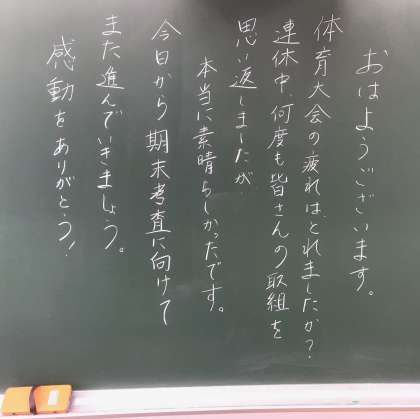 おはようございます。
体育大会の疲れは、とれましたか？
連休中、何度も皆さんの取組を
思い返しましたが
本当に素晴らしかったです。
今日から期末考査に向けて
また進んでいきましょう。
感動をありがとう！